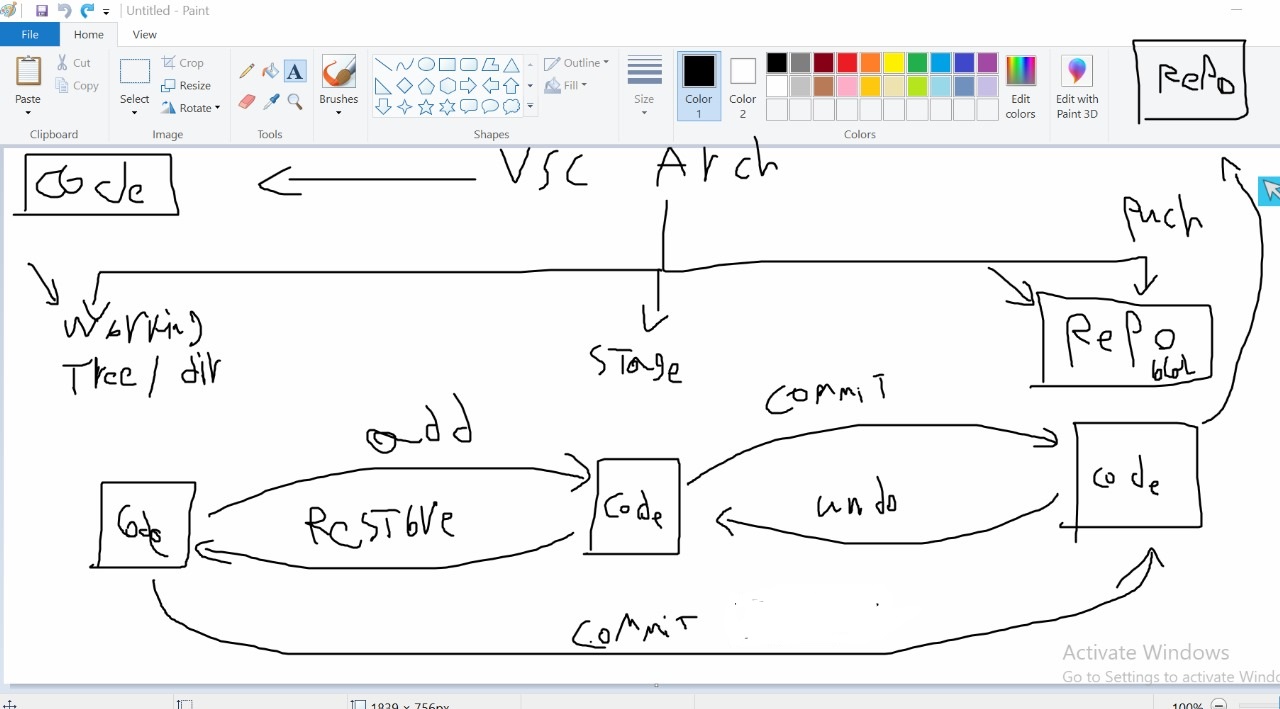 Untitled - Paint
File Home View
Paste
Cut
Copy
Clipboard
Select
Crop
Resize
Rotate
Image
A
Tools
Brushes
Outline
Fill
Shapes
Size
Color 1
Color 2
Edit colors
Edit with Paint 3D
Colors
RePo
Code
VSC Arch
Puch
Working
Tree / dir
STage
RePo
add
COMMiT
Code
ReSTore
Code
undo
Code
COMMiT
Activate Windows
Go to Settings to activate Windo
1839 × 756px
100%